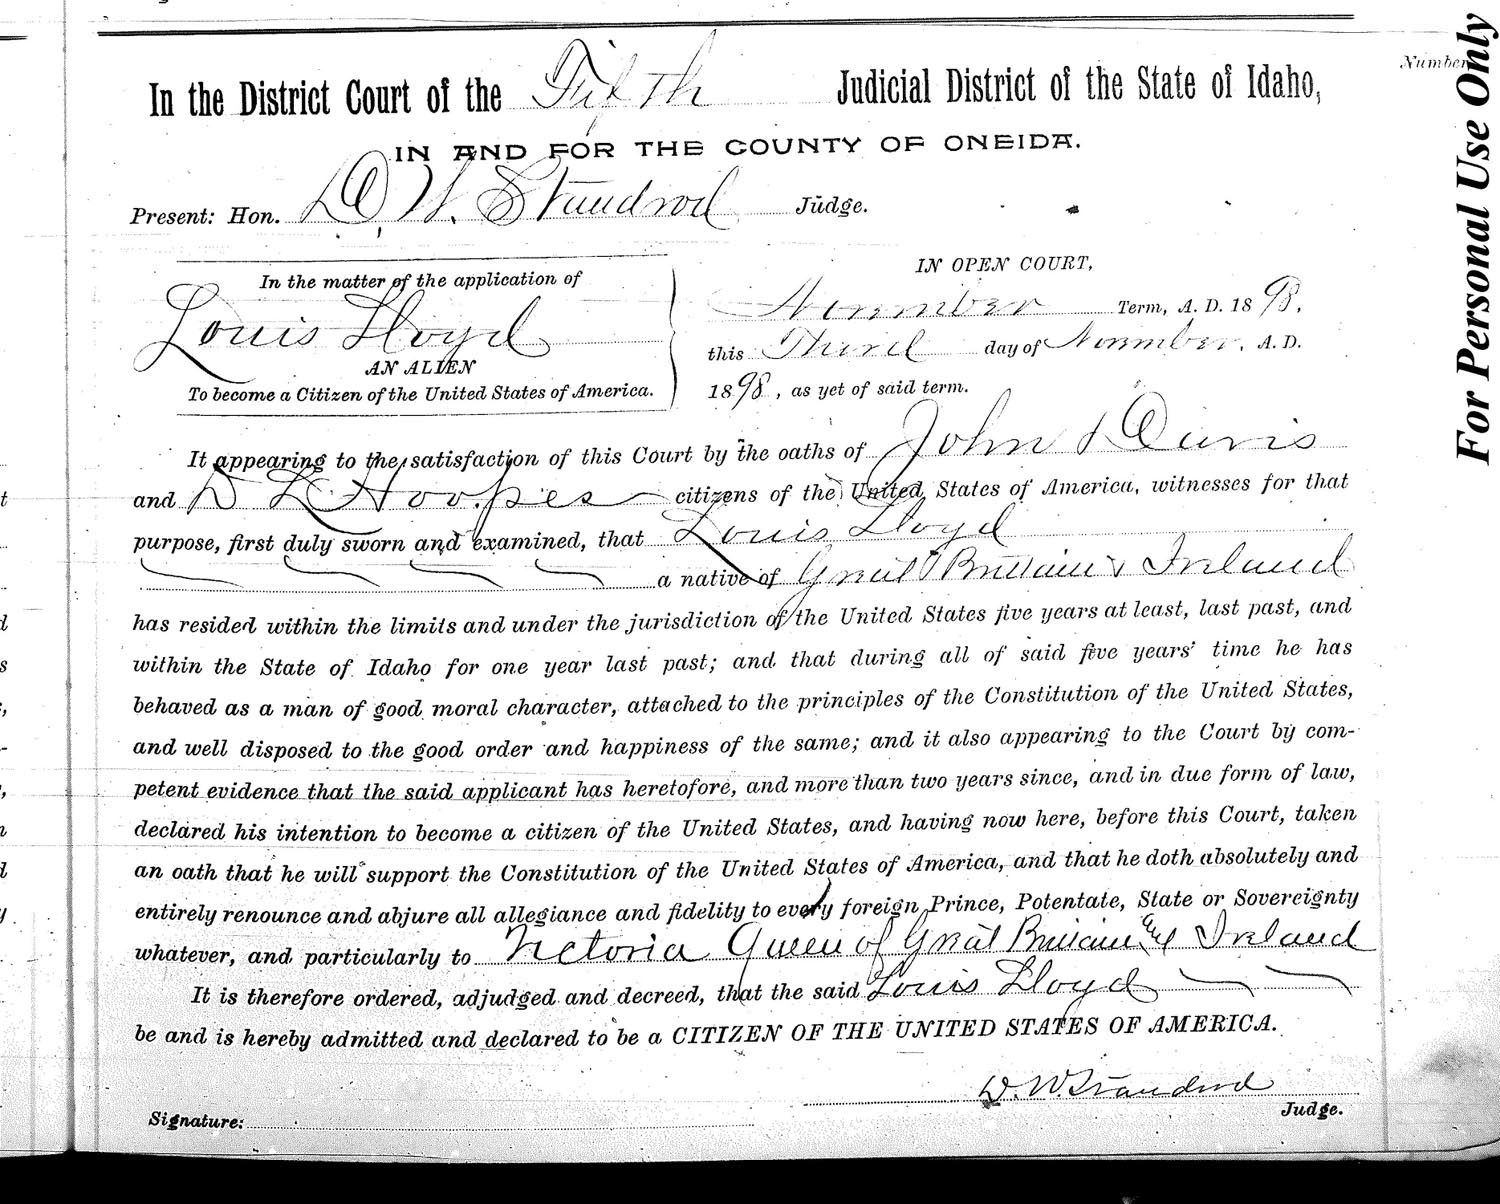 Number
For Personal Use Only
In the District Court of the Fifth Judicial District of the State of Idaho,
IN AND FOR THE COUNTY OF ONEIDA.
Present: Hon. D. W. Standrod Judge.
In the matter of the application of
Louis Lloyd
AN ALIEN
To become a Citizen of the United States of America.
IN OPEN COURT,
November Term, A. D. 1898,
this Third day of November, A. D.
1898, as yet of said term.
It appearing to the satisfaction of this Court by the oaths of John Davis
and D L Hoopes citizens of the United States of America, witnesses for that
purpose, first duly sworn and examined, that Louis Lloyd
a native of Great Brittain & Ireland
has resided within the limits and under the jurisdiction of the United States five years at least, last past, and
within the State of Idaho for one year last past; and that during all of said five years' time he has
behaved as a man of good moral character, attached to the principles of the Constitution of the United States,
and well disposed to the good order and happiness of the same; and it also appearing to the Court by com-
petent evidence that the said applicant has heretofore, and more than two years since, and in due form of law,
declared his intention to become a citizen of the United States, and having now here, before this Court, taken
an oath that he will support the Constitution of the United States of America, and that he doth absolutely and
entirely renounce and abjure all allegiance and fidelity to every foreign Prince, Potentate, State or Sovereignty
whatever, and particularly to Victoria Queen of Great Brittain and Ireland
It is therefore ordered, adjudged and decreed, that the said Louis Lloyd
be and is hereby admitted and declared to be a CITIZEN OF THE UNITED STATES OF AMERICA.
D. W. Standrod
Judge.
Signature: